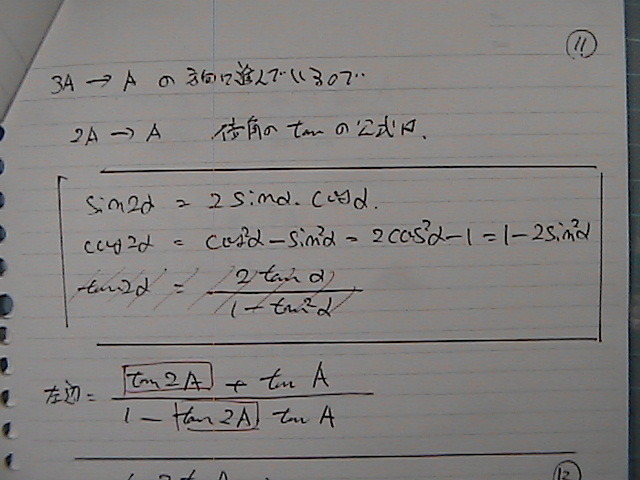 ⑪
3A → A の方向に進んでいるので‥
2A → A 倍角の tan の公式は、
sin2α = 2 sinα・cosα.
cos2α = cos²α - sin²α = 2cos²α - 1 = 1 - 2sin²α
tan2α = 2 tan α / 1 - tan²α
左辺 = tan 2A + tan A / 1 - tan 2A tan A
⑫